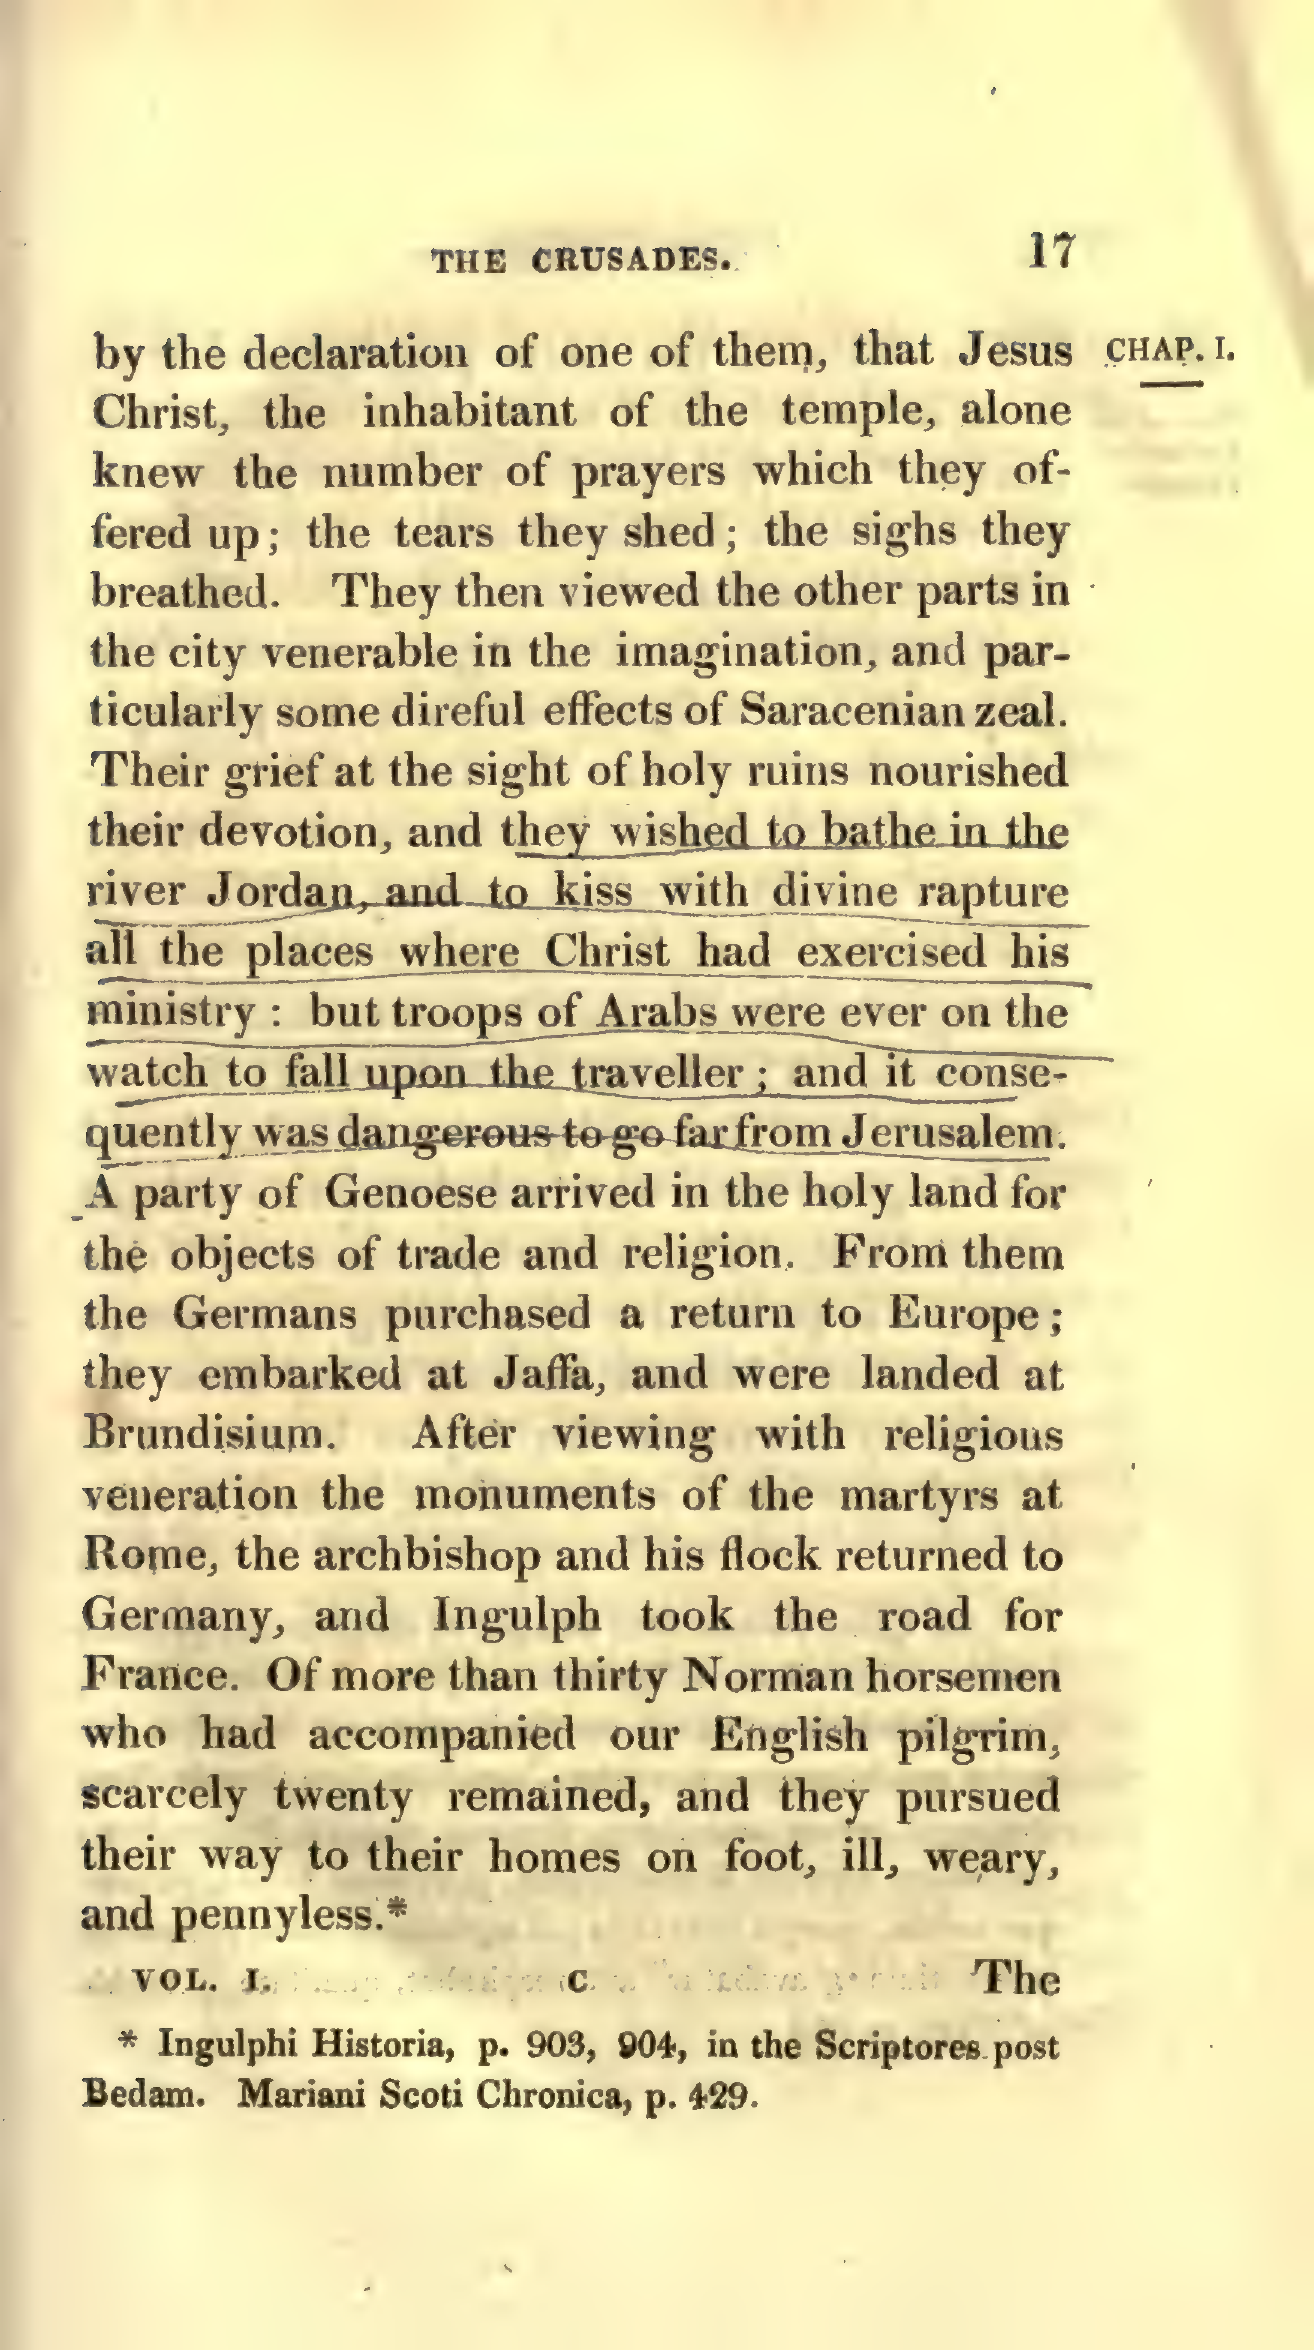 THE CRUSADES. 17
by the declaration of one of them, that Jesus CHAP. I.
Christ, the inhabitant of the temple, alone
knew the number of prayers which they of-
fered up; the tears they shed; the sighs they
breathed. They then viewed the other parts in
the city venerable in the imagination, and par-
ticularly some direful effects of Saracenian zeal.
Their grief at the sight of holy ruins nourished
their devotion, and they wished to bathe in the
river Jordan, and to kiss with divine rapture
all the places where Christ had exercised his
ministry: but troops of Arabs were ever on the
watch to fall upon the traveller; and it conse-
quently was dangerous to go far from Jerusalem.
A party of Genoese arrived in the holy land for
the objects of trade and religion. From them
the Germans purchased a return to Europe;
they embarked at Jaffa, and were landed at
Brundisium. After viewing with religious
veneration the monuments of the martyrs at
Rome, the archbishop and his flock returned to
Germany, and Ingulph took the road for
France. Of more than thirty Norman horsemen
who had accompanied our English pilgrim,
scarcely twenty remained, and they pursued
their way to their homes on foot, ill, weary,
and pennyless.*
VOL. I. C The
* Ingulphi Historia, p. 903, 904, in the Scriptores post
Bedam. Mariani Scoti Chronica, p. 429.